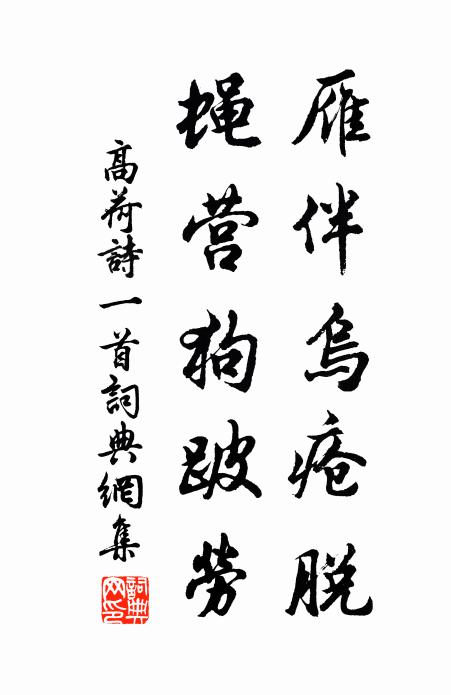 雁伴乌疮脱
蝇营狗跛劳
高荷詩一首詞典網集
詞典网印